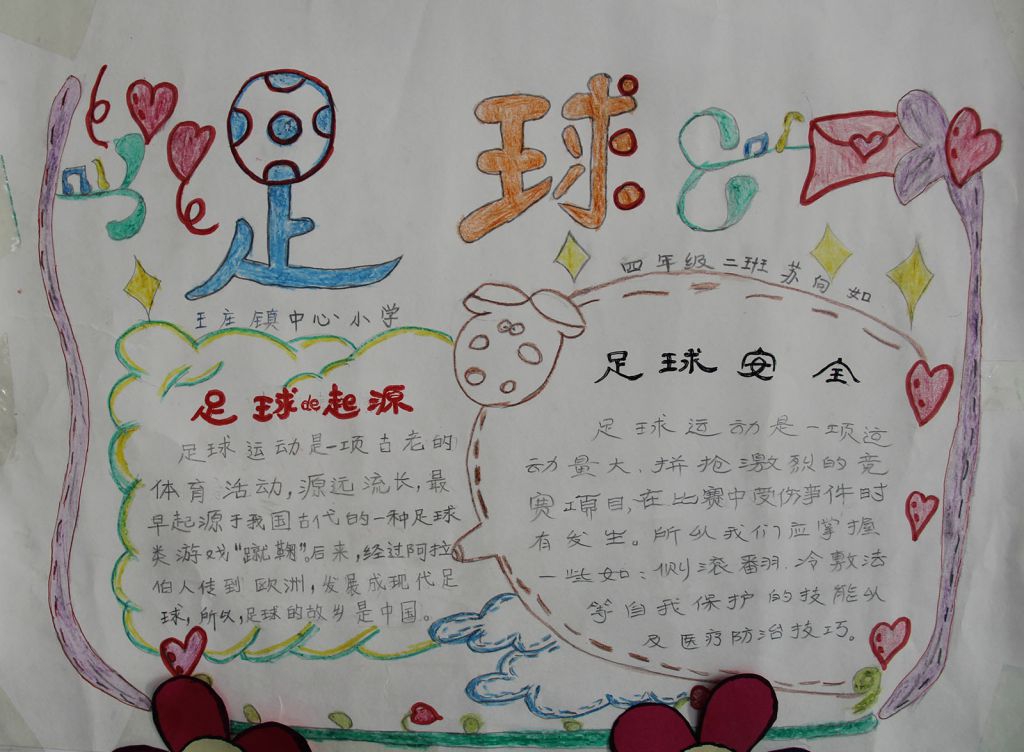 足球
四年级二班 苏向如
王庄镇中心小学
足球de起源
足球运动是一项古老的
体育活动,源远流长,最
早起源于我国古代的一种足球
类游戏“蹴鞠”。后来,经过阿拉
伯人传到欧洲,发展成现代足
球,所以,足球的故乡是中国。
足球安全
足球运动是一项运
动量大、拼抢激烈的竞
赛项目,在比赛中受伤事件时
有发生。所以我们应掌握
一些如:侧滚翻、冷敷法
等自我保护的技能以
及医疗防治技巧。